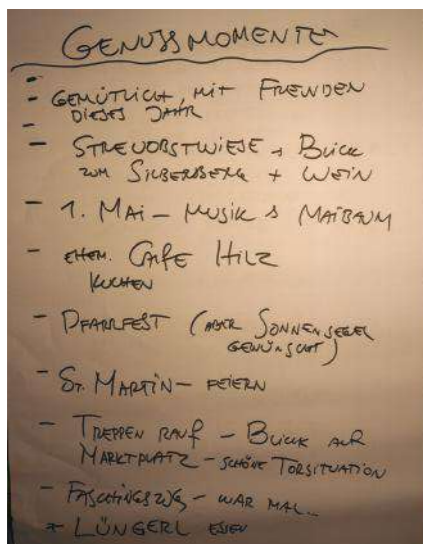 GENUSSMOMENTE
-
- GEMÜTLICH MIT FREUNDEN
DIESES JAHR
-
- STREUOBSTWIESE, BLICK
ZUM SILBERBERG + WEIN
- 1. MAI - MUSIK & MAIBAUM
- EHEM. CAFE HILZ
KUCHEN
- PFARRFEST (ABER SONNENSEGEL
GEWÜNSCHT)
- ST. MARTIN - FEIERN
- TREPPEN RAUF - BLICK AUF
MARKTPLATZ - SCHÖNE TORSITUATION
- FASCHINGSZUG - WAR MAL...
+ LÜNGERL ESSEN